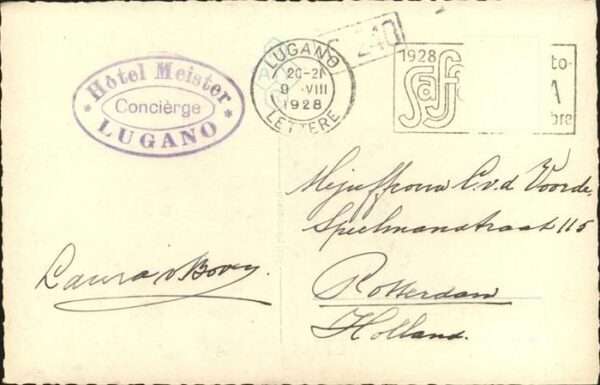 Hôtel Meister
Concièrge
LUGANO
LUGANO
20-21
9 VIII
1928
LETTERE
240
1928
Saffa
to-
bre
Mejuffrouw C. v. d. Voorde.
Speelmanstraat 115
Rotterdam
Holland.
Laura v Bovey.